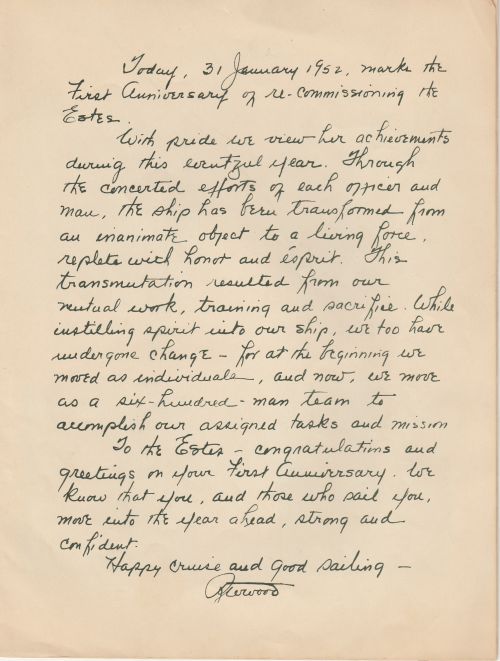 Today, 31 January 1952, marks the
First Anniversary of re-commissioning the
Estes.
With pride we view her achievements
during this eventful year. Through
the concerted efforts of each officer and
man, the ship has been transformed from
an inanimate object to a living force,
replete with honor and ésprit. This
transmutation resulted from our
mutual work, training and sacrifice. While
instilling spirit into our ship, we too have
undergone change – for at the beginning we
moved as individuals, and now, we move
as a six-hundred-man team to
accomplish our assigned tasks and mission
To the Estes – congratulations and
greetings on your First Anniversary. We
know that you, and those who sail you,
move into the year ahead, strong and
confident.
Happy cruise and good sailing –